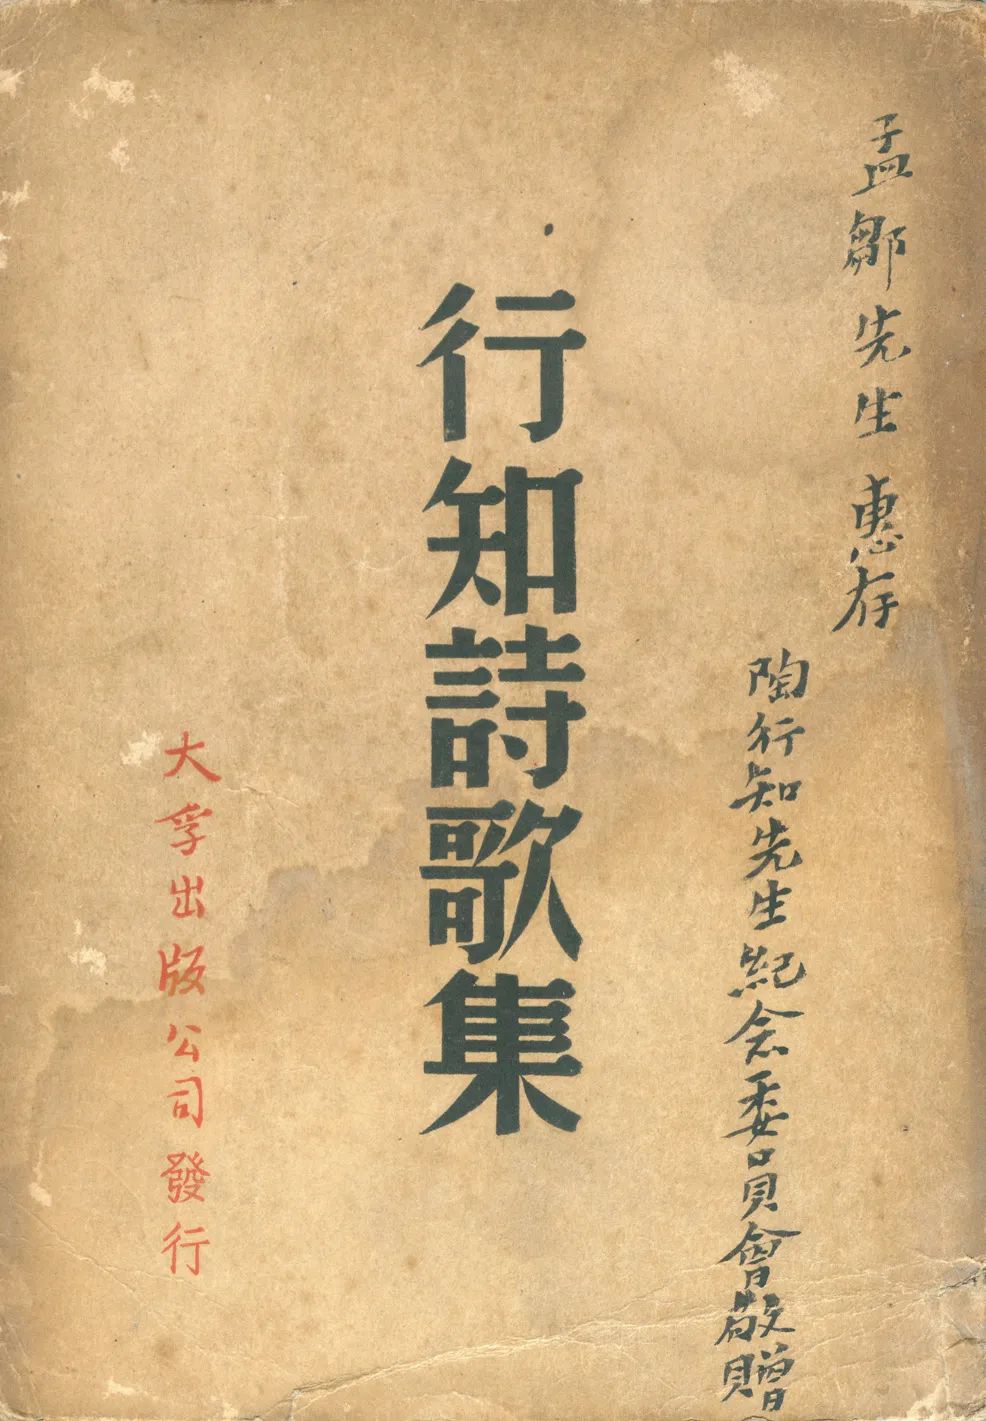 孟鄒先生惠存
陶行知先生紀念委員會敬贈
行知詩歌集
大孚出版公司發行